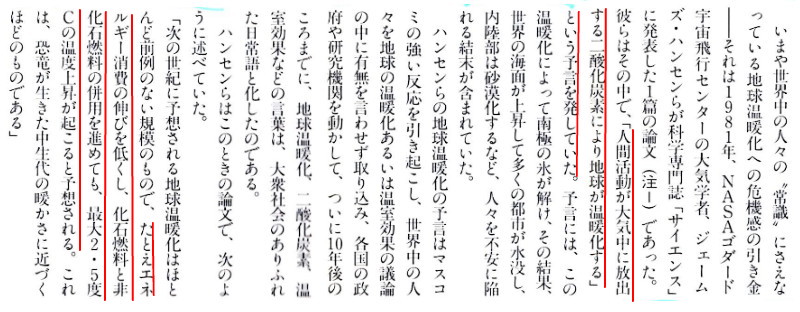 いまや世界中の人々の〝常識〟にさえな
っている地球温暖化への危機感の引き金
――それは1981年、NASAゴダード
宇宙飛行センターの大気学者、ジェーム
ズ・ハンセンらが科学専門誌「サイエンス」
に発表した1篇の論文（注1）であった。
彼らはその中で、「人間活動が大気中に放出
する二酸化炭素により地球が温暖化する」
という予言を発していた。予言には、この
温暖化によって南極の氷が解け、その結果、
世界の海面が上昇して多くの都市が水没し、
内陸部は砂漠化するなど、人々を不安に陥
れる結末が含まれていた。
ハンセンらの地球温暖化の予言はマスコ
ミの強い反応を引き起こし、世界中の人
々を地球の温暖化あるいは温室効果の議論
の中に有無を言わせず取り込み、各国の政
府や研究機関を動かして、ついに10年後の
ころまでに、地球温暖化、二酸化炭素、温
室効果などの言葉は、大衆社会のありふれ
た日常語と化したのである。
ハンセンらはこのときの論文で、次のよ
うに述べていた。
「次の世紀に予想される地球温暖化はほと
んど前例のない規模のもので、たとえエネ
ルギー消費の伸びを低くし、化石燃料と非
化石燃料の併用を進めても、最大2・5度
Cの温度上昇が起こると予想される。これ
は、恐竜が生きた中生代の暖かさに近づく
ほどのものである」